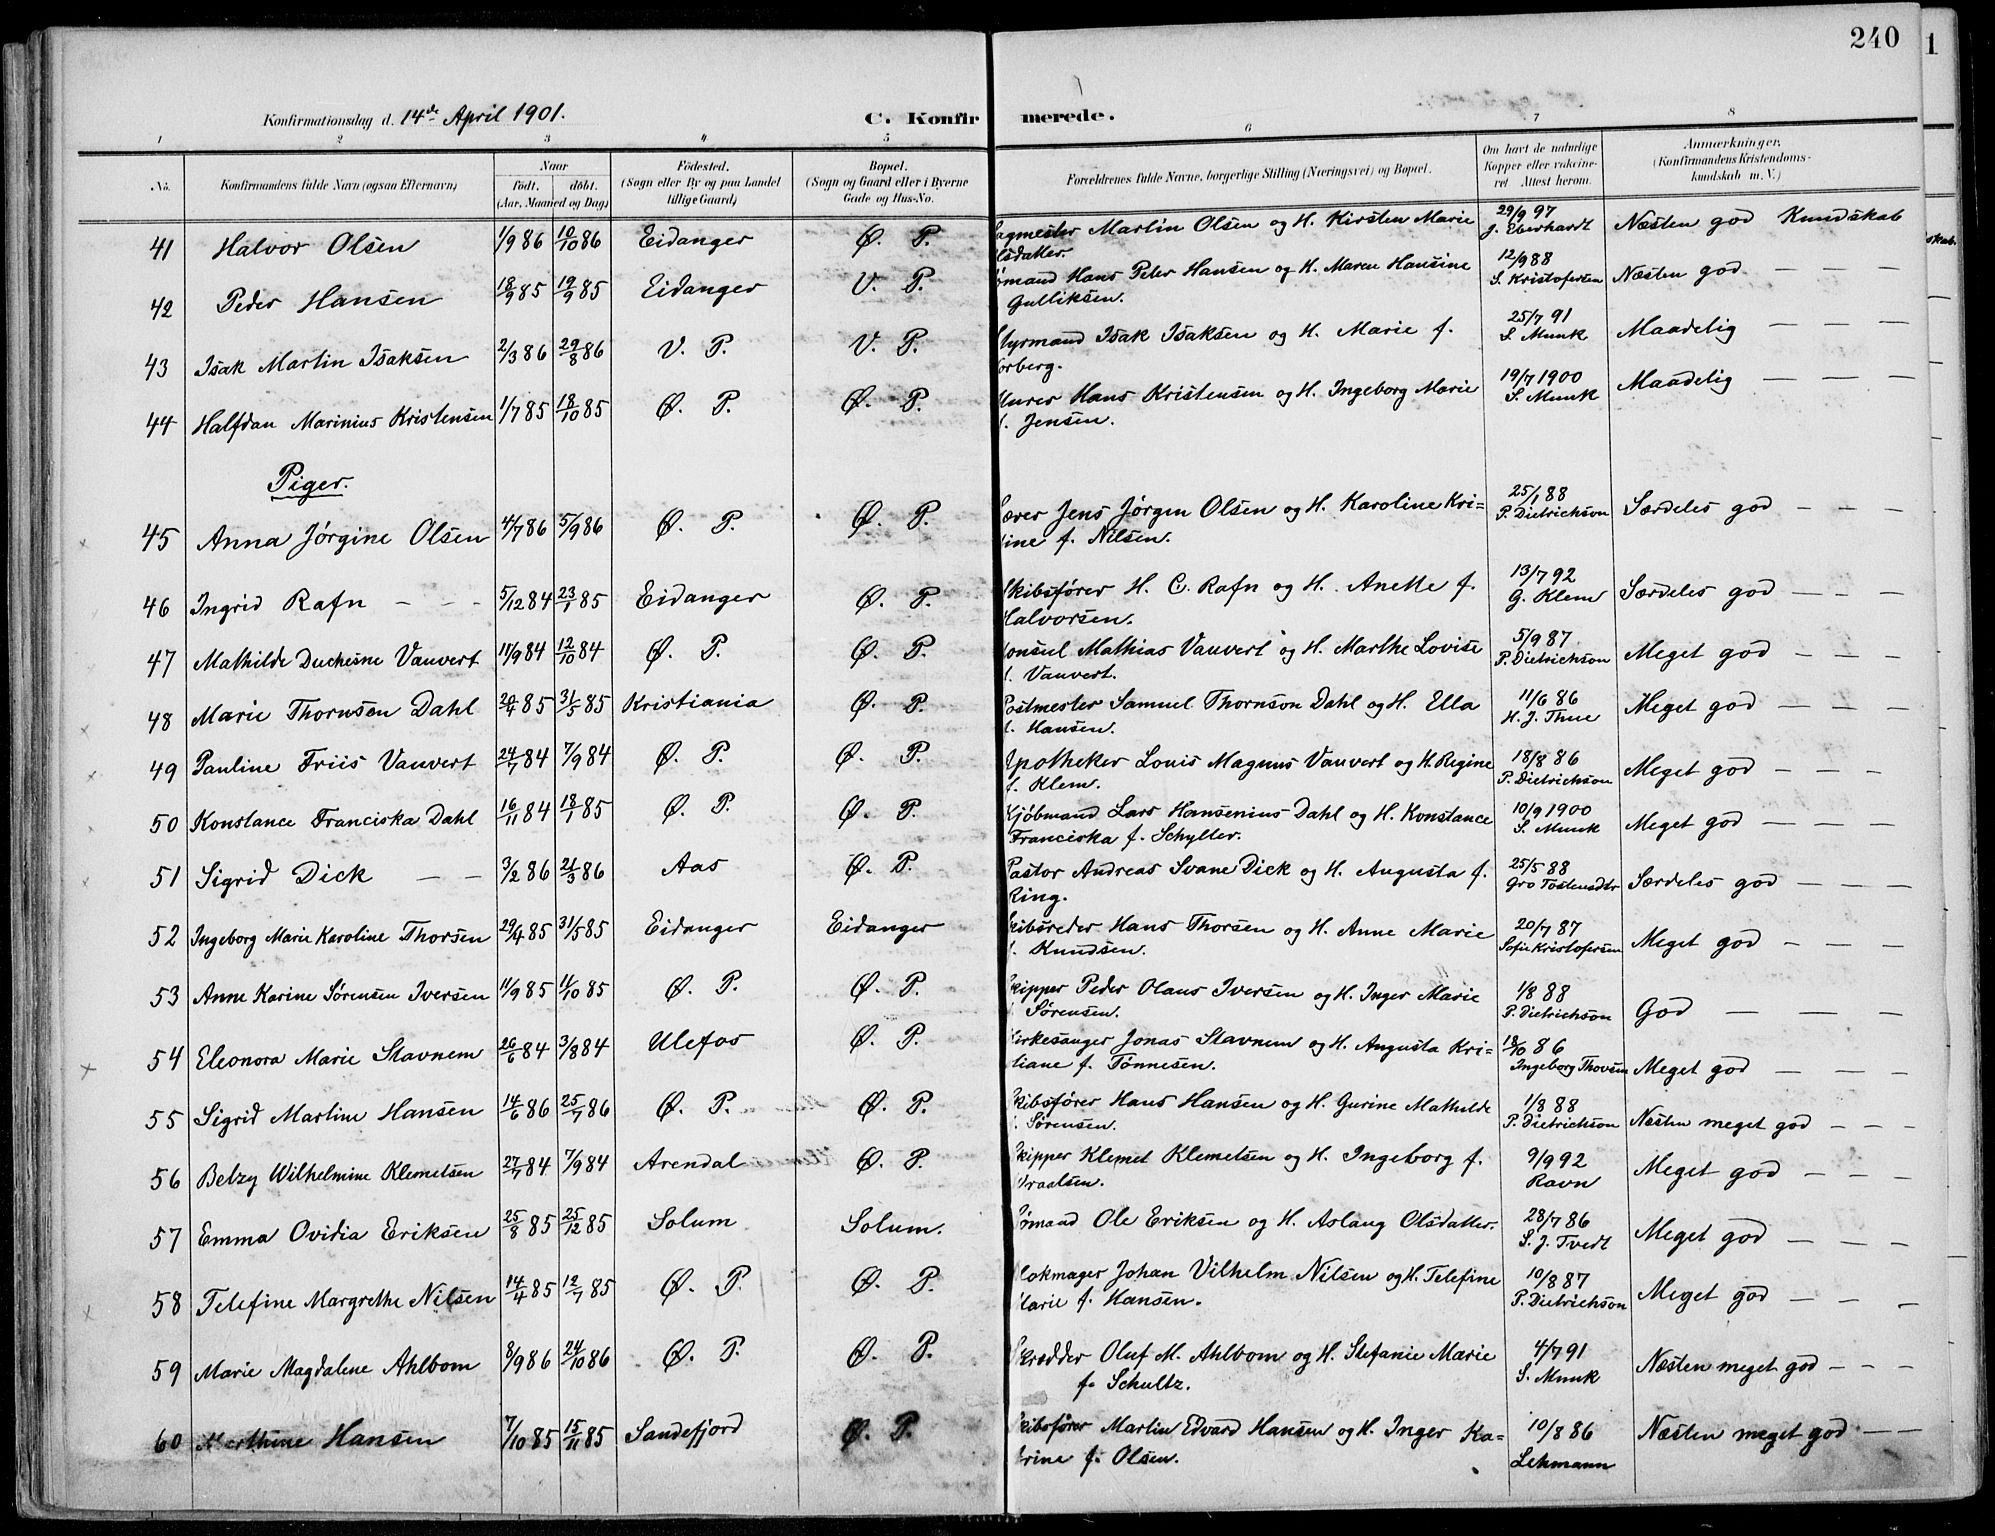 240
1
Konfirmationsdag d. 14de April 1901. C. Konfirmerede.
1 2 3 4 5 6 7 8
No. Konfirmandens fulde Navn (ogsaa Efternavn) Naar født. døbt. (Aar, Maaned og Dag) Fødested. (Sogn eller By og paa Landet tillige Gaard) Bopæl. (Sogn og Gaard eller i Byerne Gade og Hus-No. Forældrenes fulde Navne, borgerlige Stilling (Næringsvei) og Bopæl. Om havt de naturlige Kopper eller vakcineret Attest herom. Anmærkninger. (Konfirmandens Kristendomskundskab m. V.)
41 Halvor Olsen 1/9 86 10/10 86 Eidanger Ø. P. agmester Martin Olsen og H. Kirsten Marie 29/9 97 Næsten god Kundskab
lsdatter. J. Eberhardt
42 Peder Hansen 18/9 85 19/9 85 Eidanger V. P. ømand Hans Peter Hansen og H. Maren Hansine 12/9 88 Næsten god — — —
Gulliksen. S. Kristofersen
43 Isak Martin Isaksen 2/3 86 29/8 86 V. P. V. P. tyrmand Isak Isaksen og H. Marie f. 25/7 91 Maadelig — — —
orberg. S. Munk
44 Halfdan Marinius Kristensen 1/7 85 18/10 85 Ø. P. Ø. P. urer Hans Kristensen og H. Ingeborg Marie 19/7 1900 Maadelig — — —
f. Jensen. S. Munk
Piger.
45 Anna Jørgine Olsen 4/7 86 5/9 86 Ø. P. Ø. P. ærer Jens Jørgen Olsen og H. Karoline Kri= 25/1 88 Særdeles god — — —
ine f. Nilsen. P. Dietrichson
46 Ingrid Rafn — — — 5/12 84 23/1 85 Eidanger Ø. P. kibsfører H. C. Rafn og H. Anette f. 13/7 92 Særdeles god — — —
Halvorsen. G. Klem
47 Mathilde Duchesne Vauvert 11/9 84 12/10 84 Ø. P. Ø. P. onsul Mathias Vauvert og H. Marthe Lovise 5/9 87 Meget god — — —
f. Vauvert. P. Dietrichson
48 Marie Thornsen Dahl 20/4 85 31/5 85 Kristiania Ø. P. ostmester Samuel Thornson Dahl og H. Ella 11/6 86 Meget god — — —
f. Hansen. H. J. Thue
49 Pauline Friis Vauvert 24/7 84 7/9 84 Ø. P. Ø. P. potheker Louis Magnus Vauvert og H. Regine 18/8 86 Meget god — — —
f. Klem. P. Dietrichson
50 Konstance Franciska Dahl 16/11 84 18/1 85 Ø. P. Ø. P. Kjøbmand Lars Hansenius Dahl og H. Konstance 10/9 1900 Meget god — — —
Franciska f. Schylter. S. Munk
51 Sigrid Dick — — 3/2 86 21/3 86 Aas Ø. P. Pastor Andreas Svane Dick og H. Augusta f. 25/5 88 Særdeles god — — —
Ring. Gro Tostensdtr
52 Ingeborg Marie Karoline Thorsen 29/4 85 31/5 85 Eidanger Eidanger kibsreder Hans Thorsen og H. Anne Marie 20/7 87 Meget god — — —
f. Knudsen. Sofie Kristofersen
53 Anne Karine Sørensen Iversen 11/9 85 11/10 85 Ø. P. Ø. P. kipper Peder Olaus Iversen og H. Inger Marie 1/8 88 God — — —
Sørensen. P. Dietrichson
54 Eleonora Marie Stavnem 26/6 84 3/8 84 Ulefos Ø. P. irkesanger Jonas Stavnem og H. Augusta Kri= 18/10 86 Meget god — — —
tiane f. Tønnesen. Ingeborg Thovsen
55 Sigrid Martine Hansen 14/6 86 25/7 86 Ø. P. Ø. P. kibsfører Hans Hansen og H. Gurine Mathilde 1/8 88 Næsten meget god — — —
Sørensen. P. Dietrichson
56 Betzy Wilhelmine Klemetsen 27/7 84 7/9 84 Arendal Ø. P. kipper Klemet Klemetsen og H. Ingeborg f. 9/9 92 Meget god — — —
raalsen. Ravn
57 Emma Ovidia Eriksen 25/8 85 25/12 85 Solum Solum. ømand Ole Eriksen og H. Aslaug Olsdatter. 28/7 86 Meget god — — —
S. J. Tvedt
58 Telefine Margrethe Nilsen 14/4 85 12/7 85 Ø. P. Ø. P. lokmager Johan Vilhelm Nilsen og H. Telefine 10/8 87 Meget god — — —
Marie f. Hansen. P. Dietrichson
59 Marie Magdalene Ahlbom 8/9 86 24/10 86 Ø. P. Ø. P. krædder Oluf M. Ahlbom og H. Stefanie Marie 4/7 91 Næsten meget god — — —
f. Schultz. S. Munk
60 Marthine Hansen 7/10 85 15/11 85 Sandefjord Ø. P. kibsfører Martin Edvard Hansen og H. Inger Ka= 10/8 86 Næsten meget god — —
rine f. Olsen. Lehmann